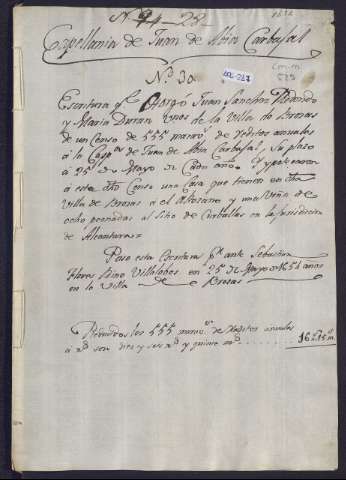 Nº 24-28
Capellania de Juan de Moia Carbajal
Nº 30
Escritura qe. Otorgó Juan Sanchez Obando
y Maria Duran Vnos de la Villa de Brozas
de un Censo de 555 mrs. de Reditos anuales
à la Capnia. de Juan de Moia Carbajal, Su plazo
à 25 de Mayo de Cada año. Y ypotecaron
à este dho Censo una Casa que tienen en dha
Villa de Brozas à el Altozano y una Viña de
ocho peonadas al Sitio de Carballas en la Jurisdicion
de Alcantara=
Paso esta Escritura pr. ante Sebastian
Flores Ssno Villalobos en 25 de Mayo de 1651 años
en la Villa de Brozas
Reducidos los 555 mrs. de Reditos anuales
à Rs. son diez y seis rs. y quince ms. 16 rs. 15 m.